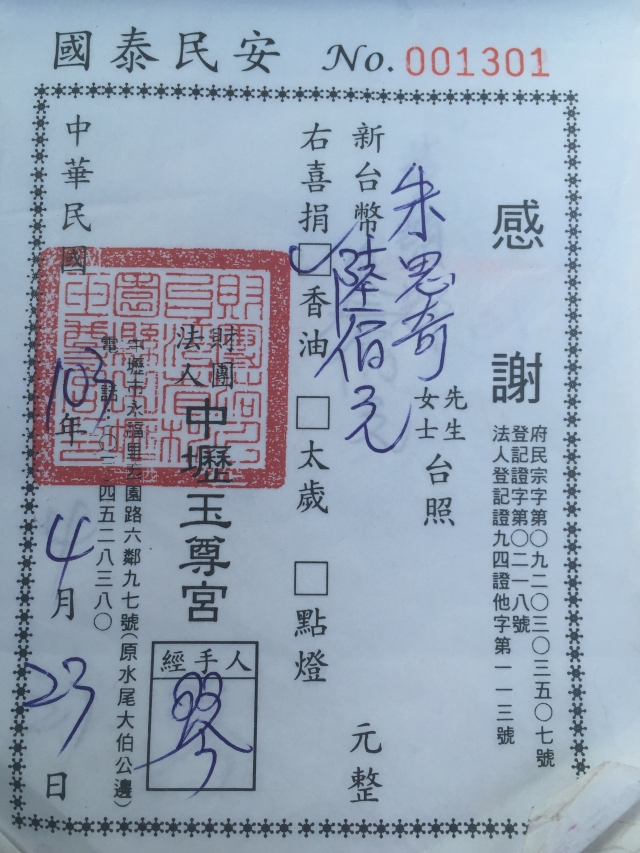 國泰民安 No. 001301
感謝
府民宗字第〇九二〇三〇三五〇七號
登記證字第〇二一八號
法人登記證九四證他字第一一三號
朱思奇 先生 女士 台照
新台幣 陸佰元 元整
右喜捐 ☑香油 □太歲 □點燈
財團法人中壢玉尊宮
經手人
中壢市永福里大園路六鄰九七號(原水尾大伯公邊)
電話:(〇三)四五二八三八〇
中華民國 103年 4月 23日